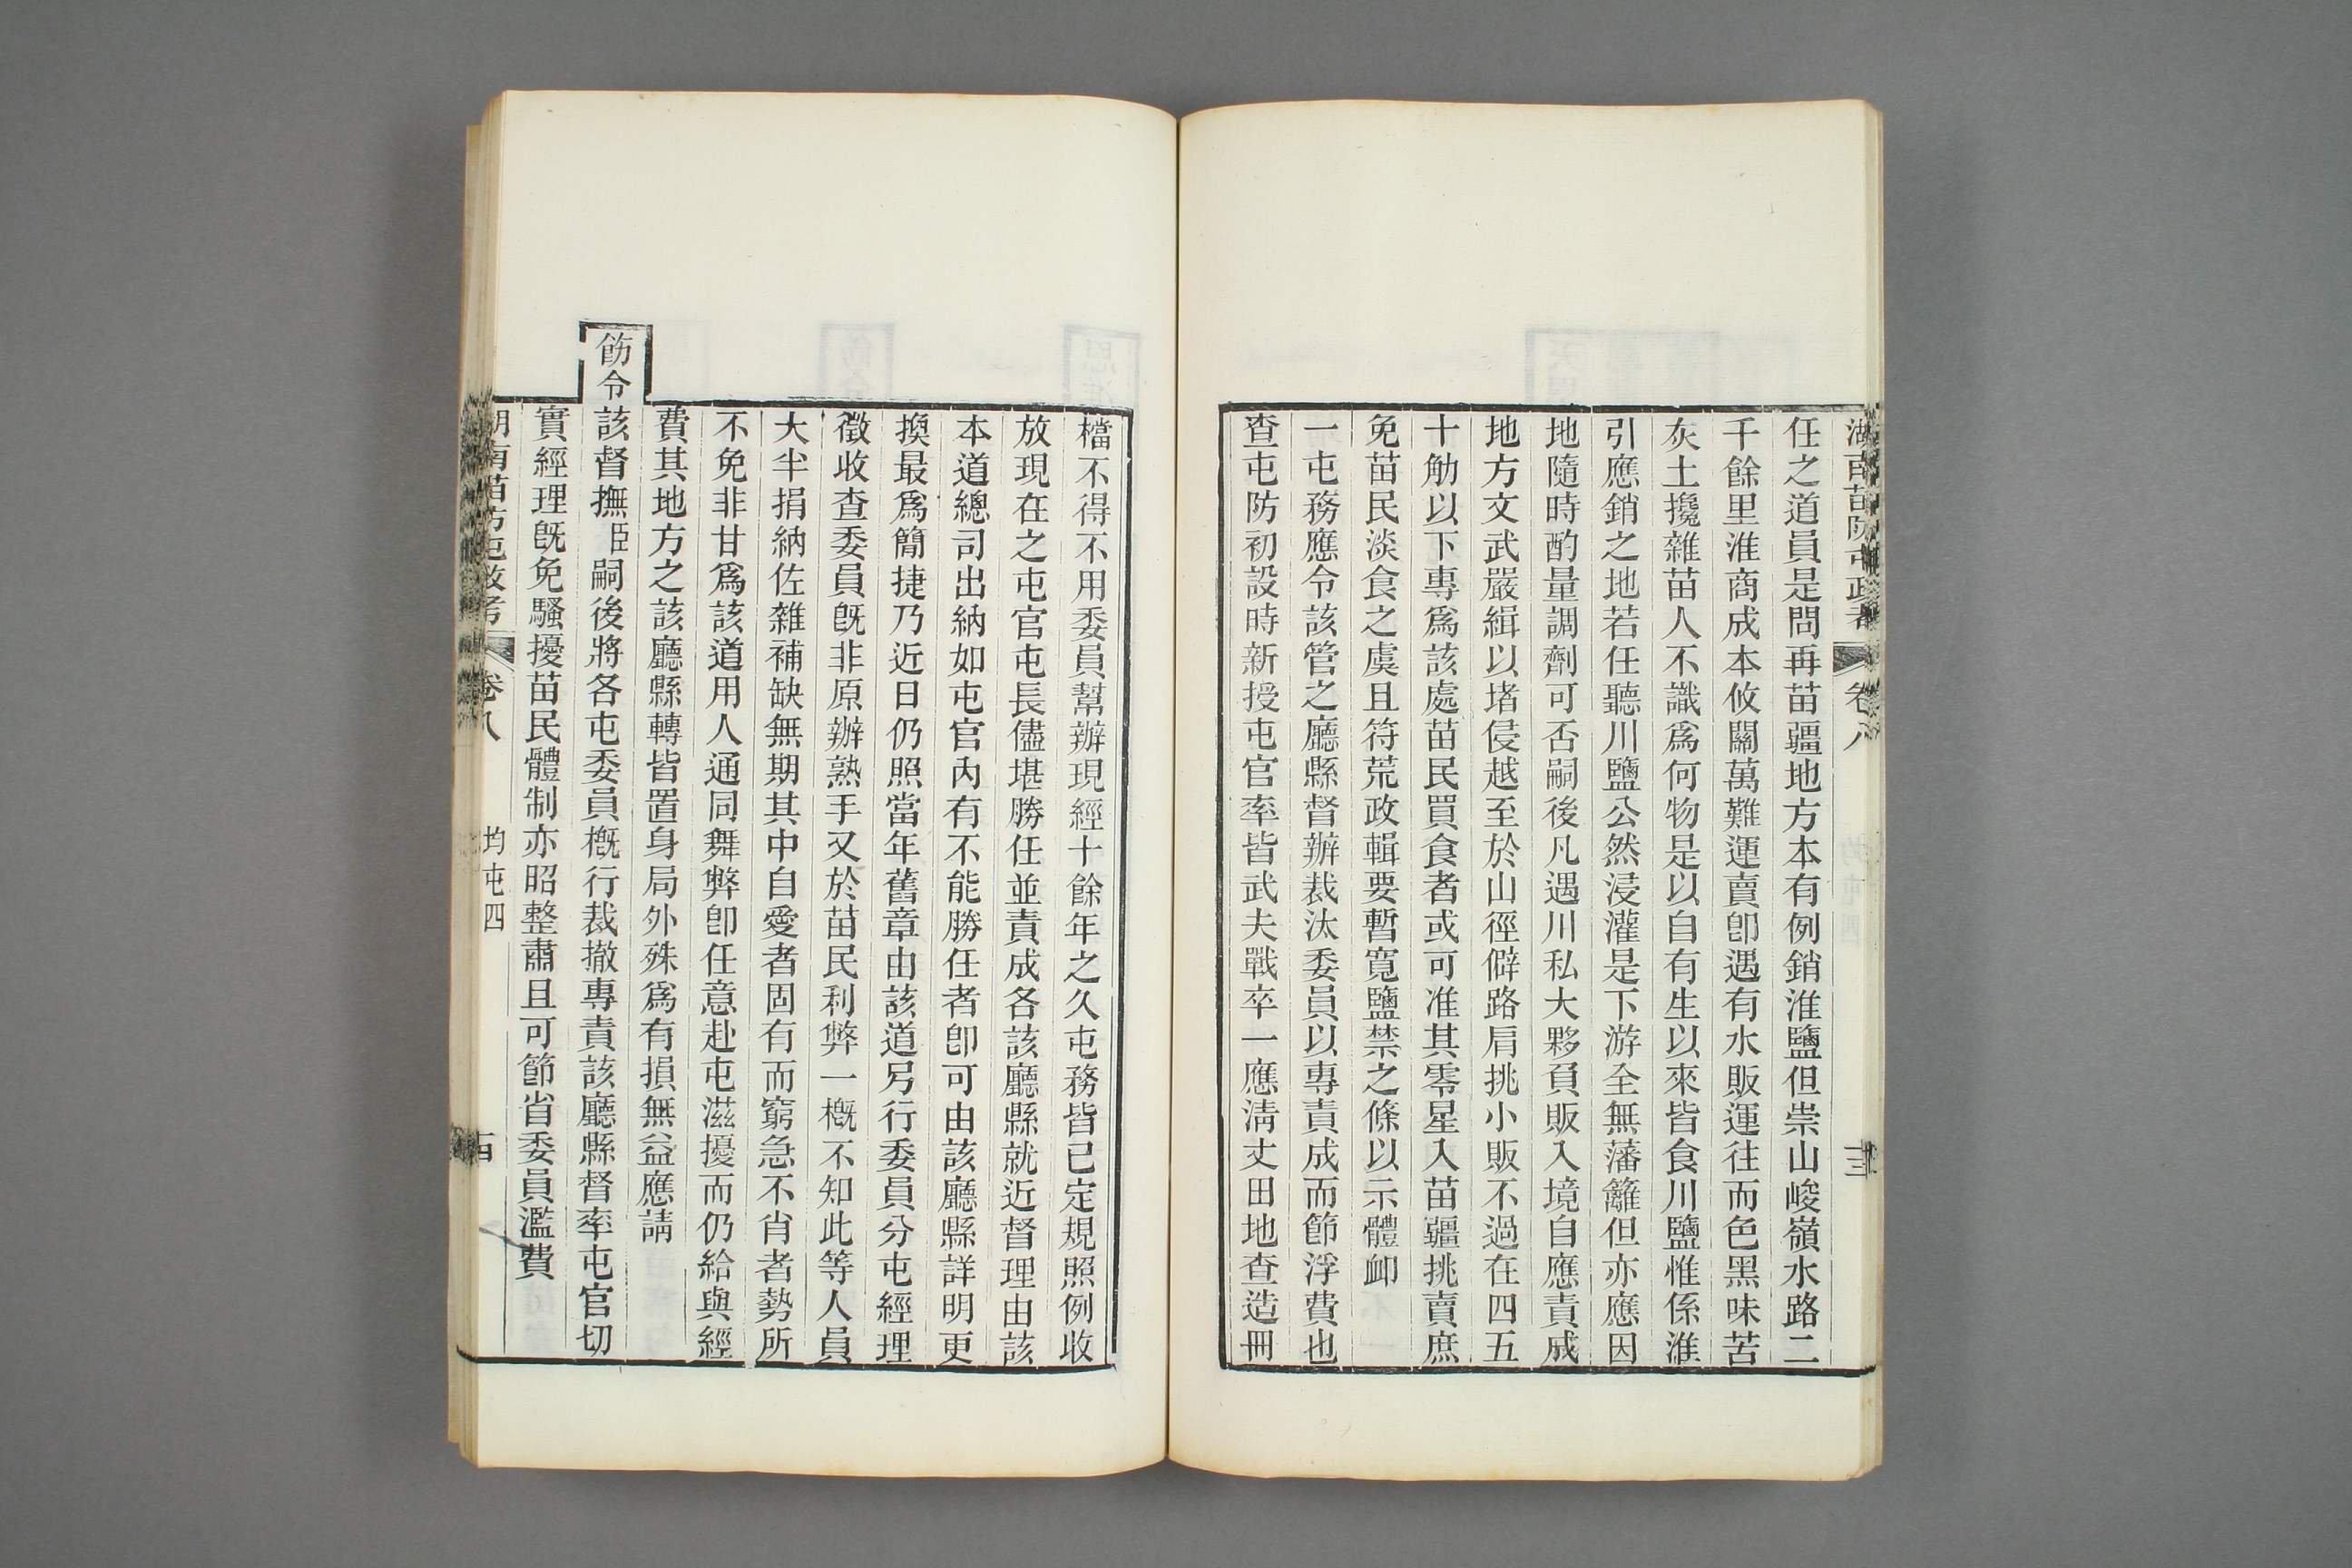 湖南苗防屯政考 卷八 十三
任之道員是問再苗疆地方本有例銷淮鹽但崇山峻嶺水路二
千餘里淮商成本攸關萬難運賣卽遇有水販運往而色黑味苦
灰土攙雜苗人不識爲何物是以自有生以來皆食川鹽惟係淮
引應銷之地若任聽川鹽公然浸灌是下游全無藩籬但亦應因
地隨時酌量調劑可否嗣後凡遇川私大夥負販入境自應責成
地方文武嚴緝以堵侵越至於山徑僻路肩挑小販不過在四五
十觔以下專爲該處苗民買食者或可准其零星入苗疆挑賣庶
免苗民淡食之虞且符荒政輯要暫寬鹽禁之條以示體卹
一屯務應令該管之廳縣督辦裁汰委員以專責成而節浮費也
查屯防初設時新授屯官率皆武夫戰卒一應淸丈田地查造冊
檔不得不用委員幫辦現經十餘年之久屯務皆已定規照例收
放現在之屯官屯長儘堪勝任並責成各該廳縣就近督理由該
本道總司出納如屯官內有不能勝任者卽可由該廳縣詳明更
換最爲簡捷乃近日仍照當年舊章由該道另行委員分屯經理
徵收查委員旣非原辦熟手又於苗民利弊一槪不知此等人員
大半捐納佐雜補缺無期其中自愛者固有而窮急不肖者勢所
不免非甘爲該道用人通同舞弊卽任意赴屯滋擾而仍給與經
費其地方之該廳縣轉皆置身局外殊爲有損無益應請
飭令該督撫臣嗣後將各屯委員槪行裁撤專責該廳縣督率屯官切
實經理旣免騷擾苗民體制亦昭整肅且可節省委員濫費
湖南苗防屯政考 卷八 均屯四